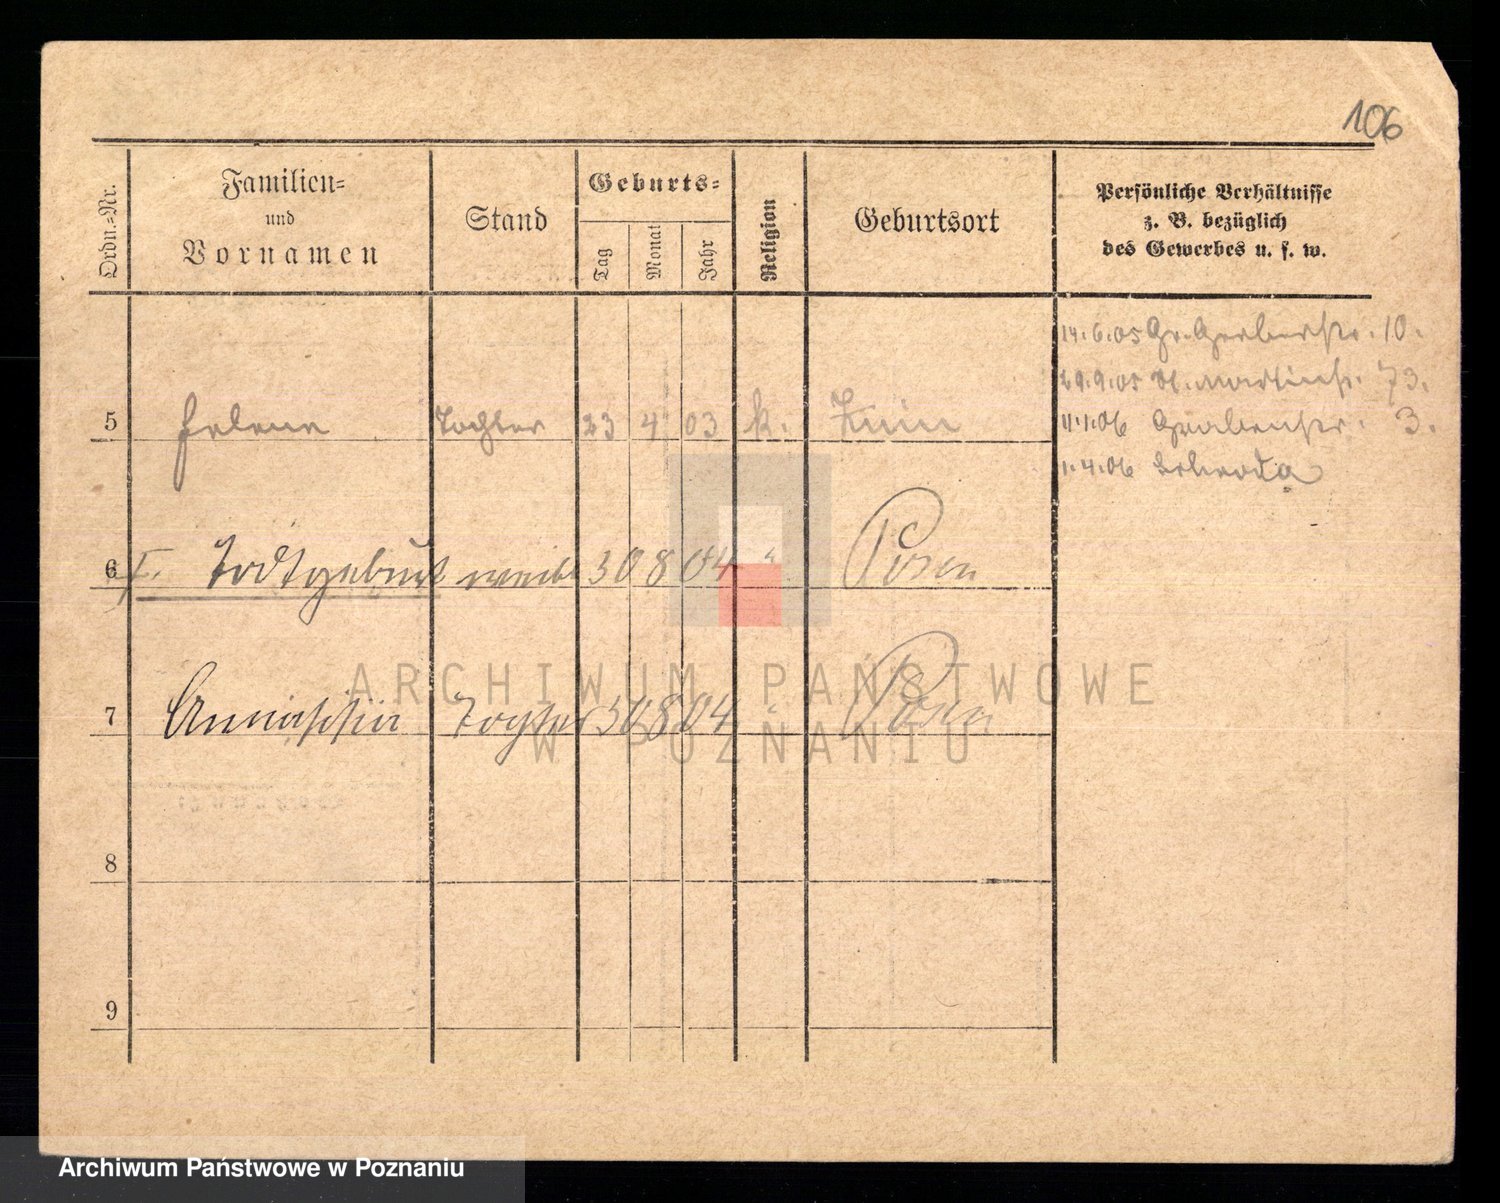 106
Ordn.=Nr.
Familien=
und
Vornamen
Stand
Geburts=
Tag
Monat
Jahr
Religion
Geburtsort
Persönliche Verhältnisse
z. B. bezüglich
des Gewerbes u. s. w.
14.6.05 Gr. Gerberstr. 10.
29.9.05 St. Martinstr. 73.
4.1.06 Grabenstr. 3.
1.4.06 Schroda
5 Helene Tochter 23 4 03 k. Znin
6 Todtgeburt weibl 30 8 04 " Posen
7 Tochter 30 8 04 " Posen
8
9
ARCHIWUM PAŃSTWOWE
W POZNANIU
Archiwum Państwowe w Poznaniu